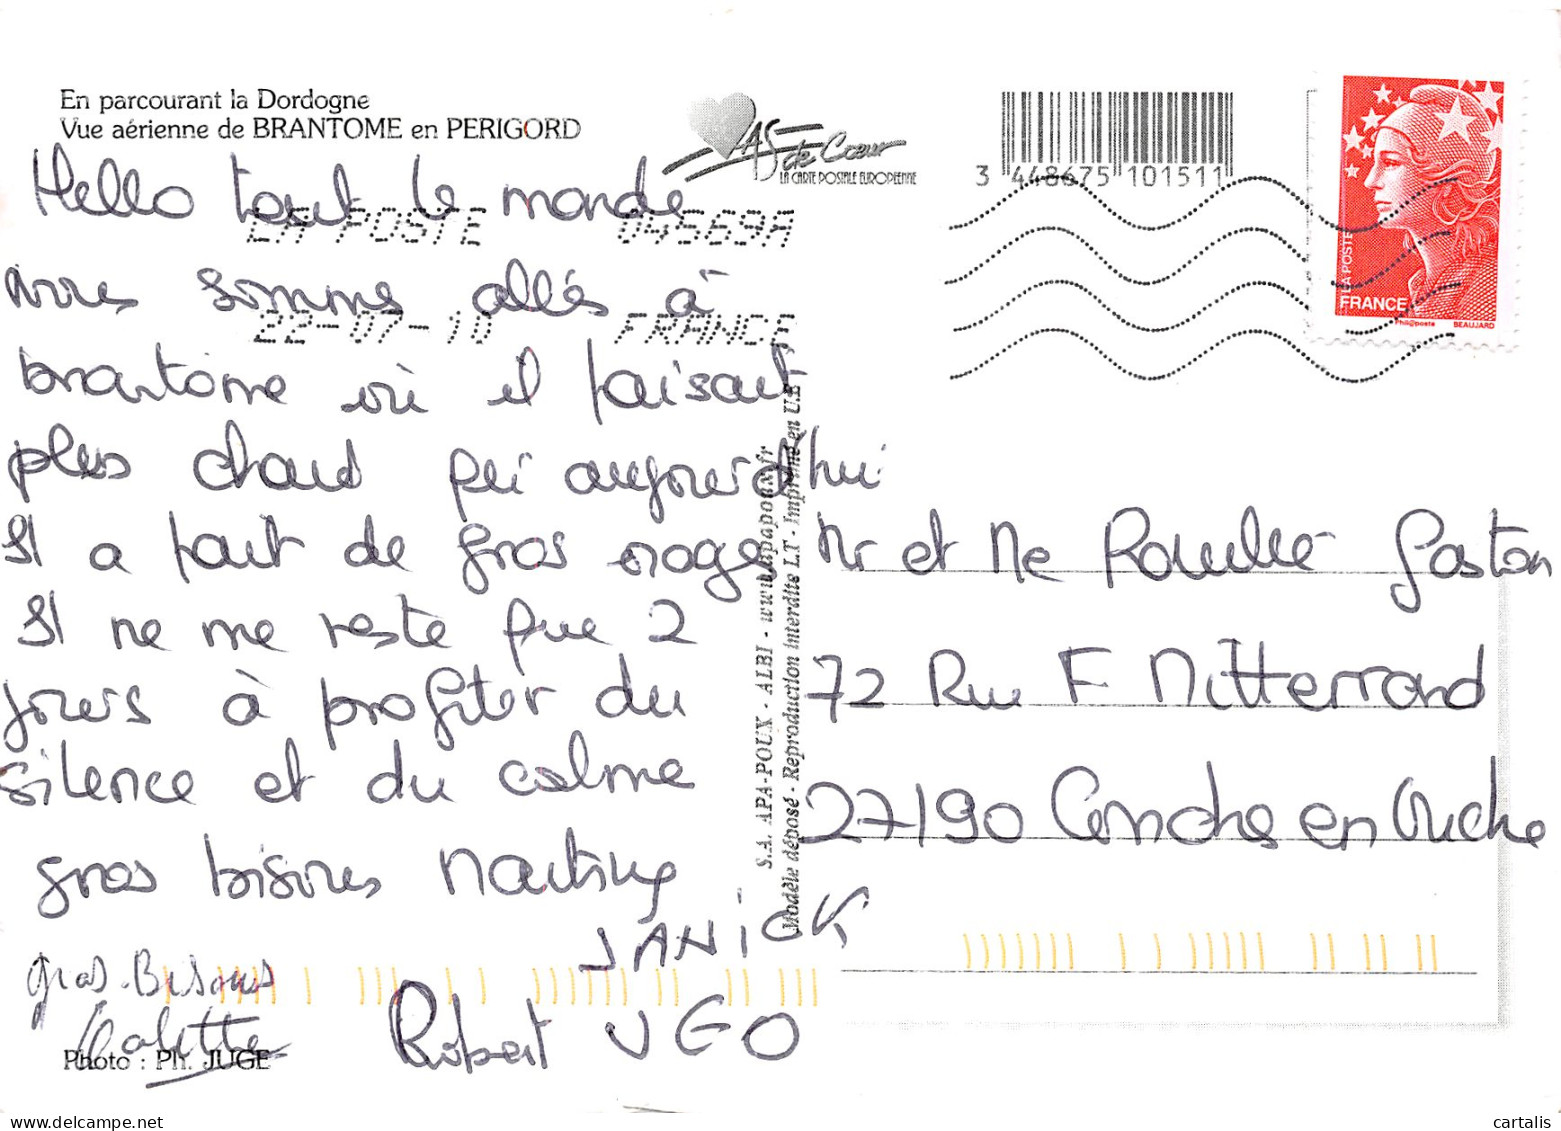 En parcourant la Dordogne
Vue aérienne de BRANTOME en PERIGORD
AS de Cœur
LA CARTE POSTALE EUROPEENNE
3 448675 101511
LA POSTE
FRANCE
Phil@poste BEAUJARD
LA POSTE 04569A
22-07-10 FRANCE
Hello tout le monde
nous sommes allés à
brantome où il faisait
plus chaud qu'aujourd'hui
Il a fait de gros orage
Il ne me reste que 2
jours à profiter du
silence et du calme
gros bisous Martine
JANICK
gros Bisous
Robert UGO
Photo : Ph. JUGE
S.A. APA-POUX - ALBI - www.apapoux.fr
Modèle déposé - Reproduction interdite L.T - Imprimé en U.E
Mr et Me Gaston
72 Rue F Mitterrand
27190 Conches en Ouche
cartalis